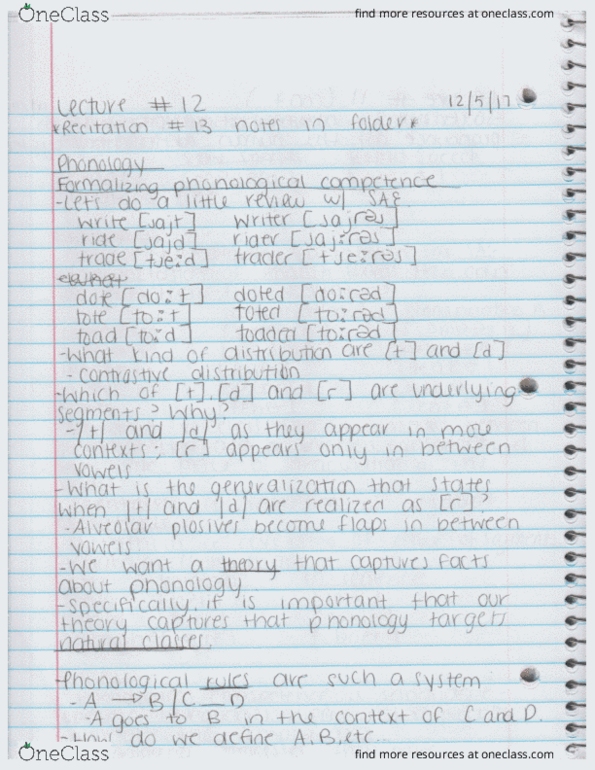 OneClass
find more resources at oneclass.com
Lecture # 12 12/5/17
*Recitation # 13 notes in folder*
Phonology
Formalizing phonological competence
-Lets do a little review w/ SAE
write [ɹajt] writer [ɹajɾəɹ]
ride [ɹajd] rider [ɹaj:ɾəɹ]
trade [tɹe:d] trader [tɹe:ɾəɹ]
dote [do:t] doted [do:ɾəd]
tote [to:t] toted [to:ɾəd]
toad [to:d] toaded [to:ɾəd]
-What kind of distribution are [t] and [d]
-contrastive distribution
-Which of [t],[d] and [ɾ] are underlying
segments? Why?
-|t| and |d| as they appear in more
contexts; [ɾ] appears only in between
vowels
-What is the generalization that states
when |t| and |d| are realized as [ɾ]?
-Alveolar plosives become flaps in between
vowels
-We want a theory that captures facts
about phonology
-Specifically, it is important that our
theory captures that phonology targets
natural classes.
-Phonological rules are such a system
-A → B / C __ D
-A goes to B in the context of C and D.
-How do we define A, B, etc...
OneClass
find more resources at oneclass.com